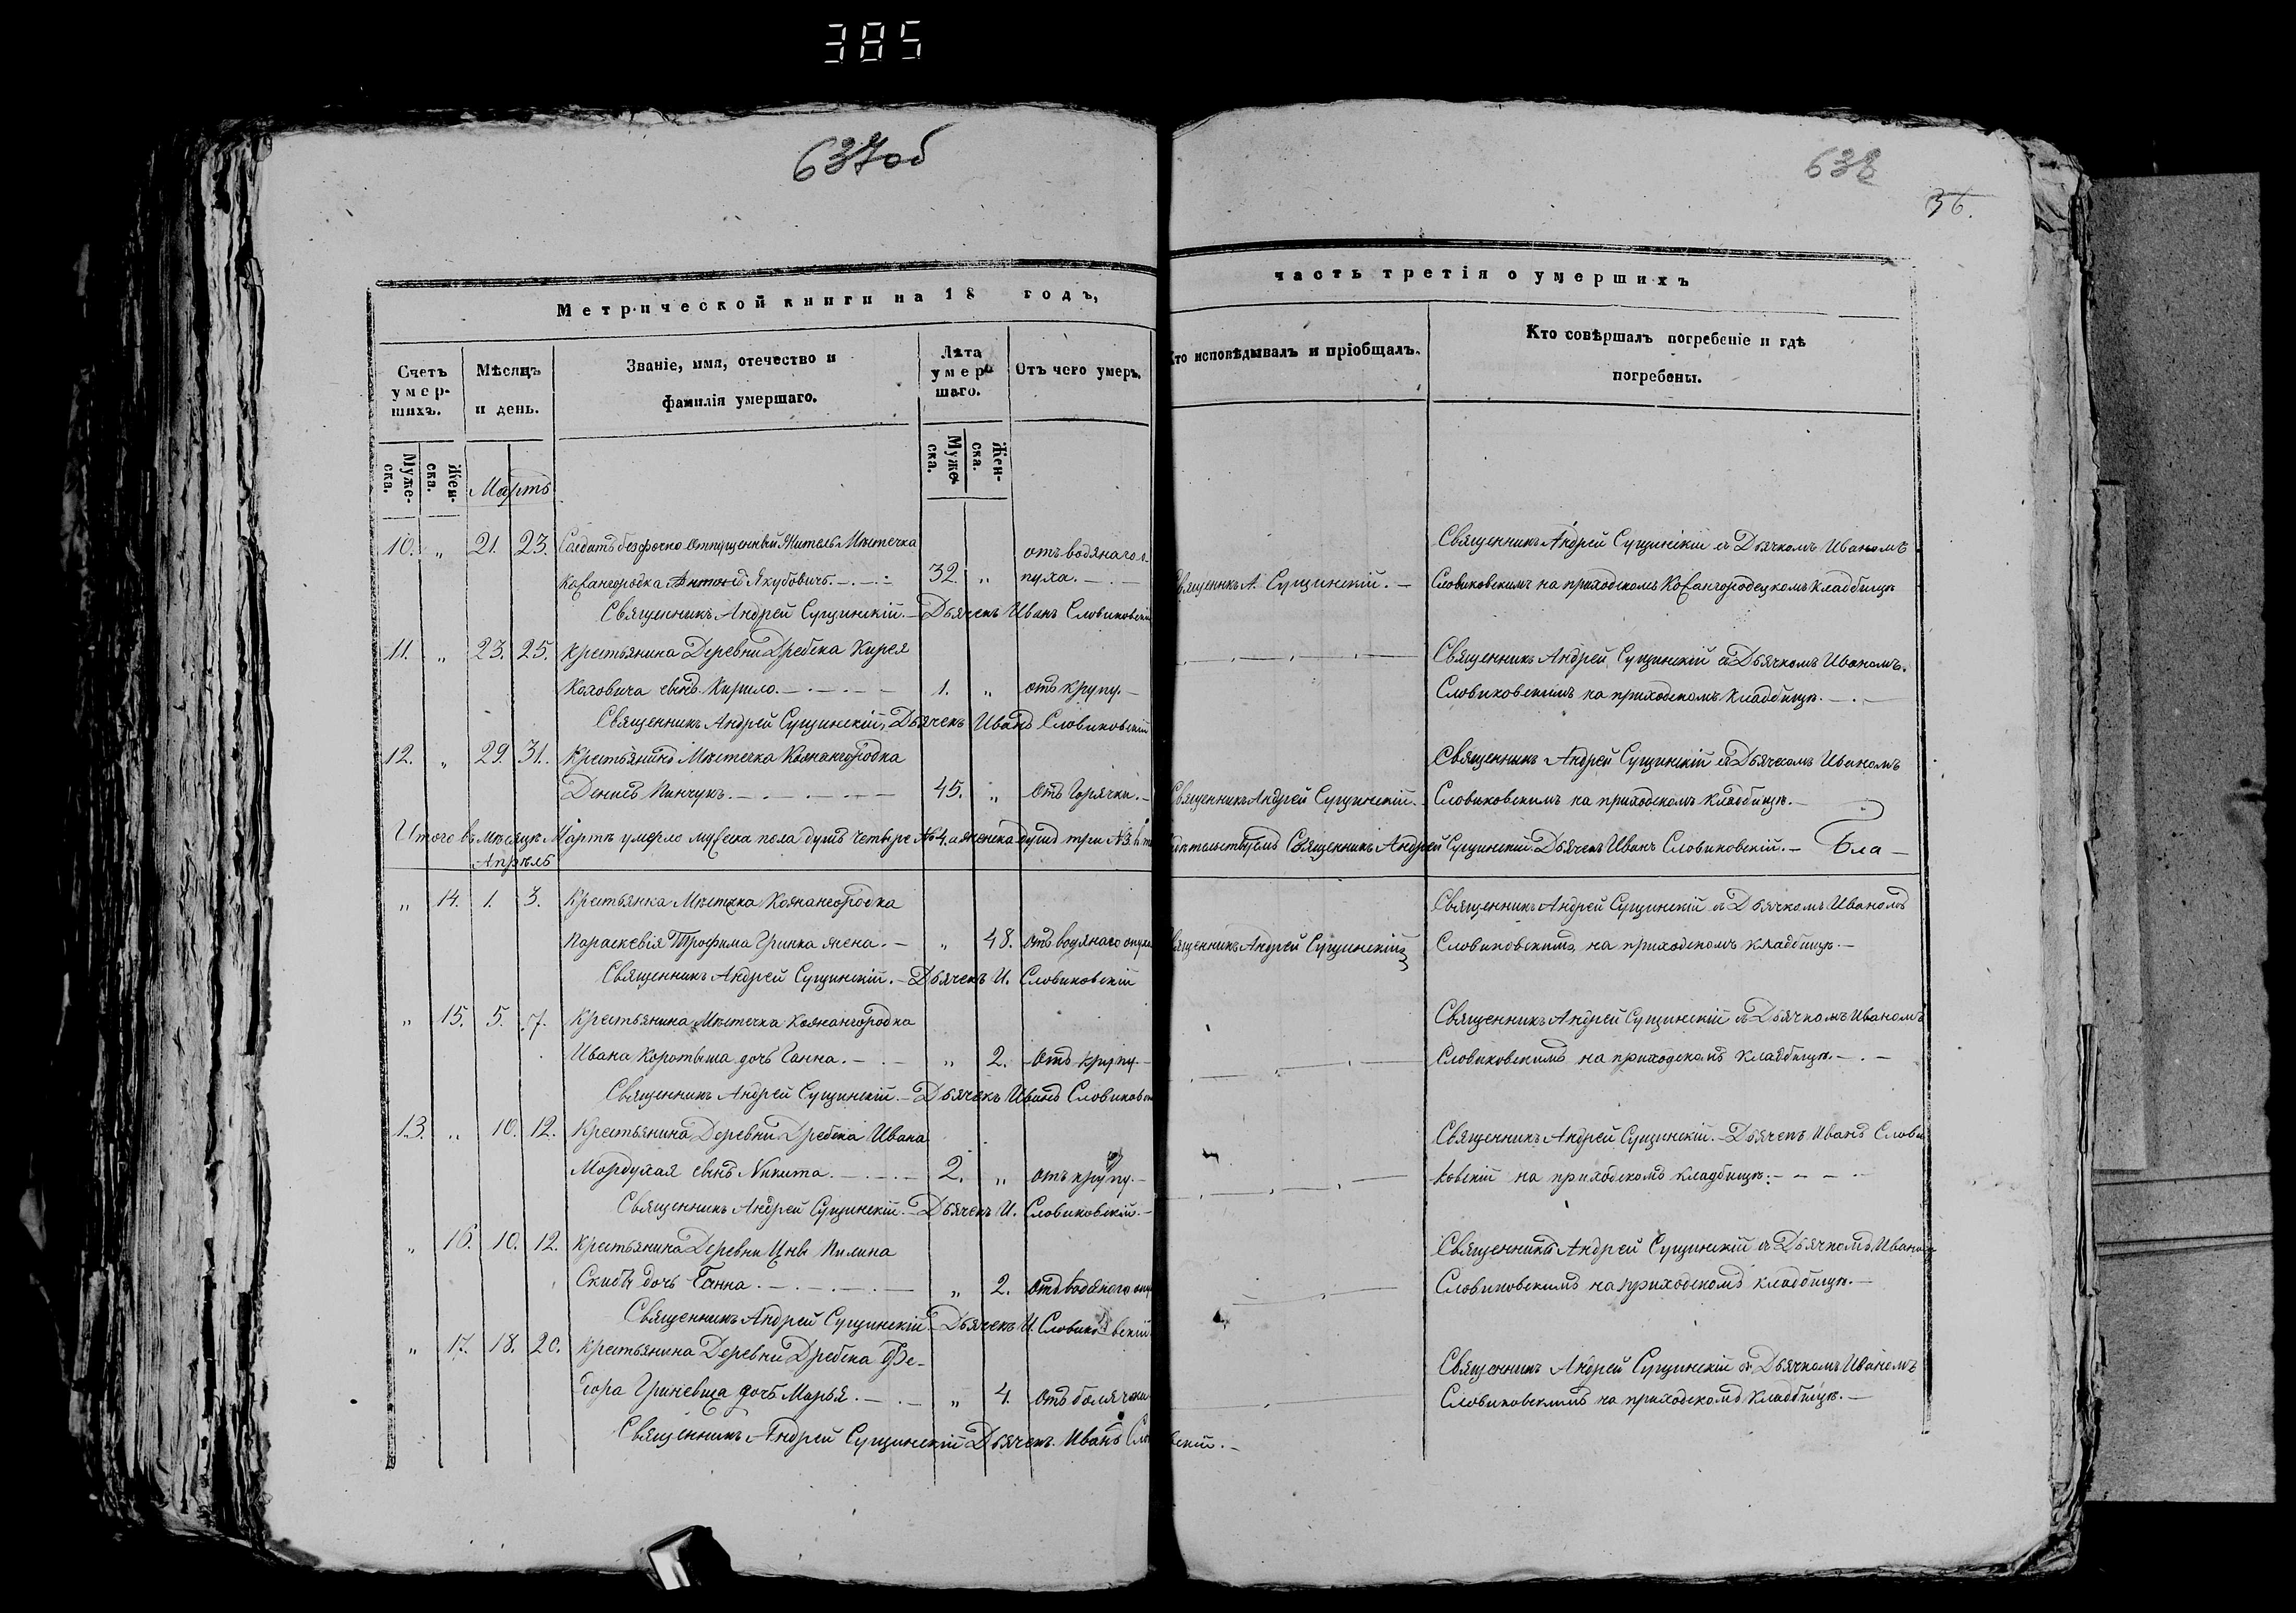 385
637об
638
36.
Метрической книги на 18 годъ,
часть третія о умершихъ
Счетъ умер-шихъ.
Мѣсяцъ и день.
Званіе, имя, отечество и фамилія умершаго.
Лѣта умер-шаго.
Отъ чего умеръ.
Кто исповѣдывалъ и пріобщалъ.
Кто совѣршалъ погребеніе и гдѣ погребены.
Муже-ска.
Жен-ска.
Муже-ска.
Жен-ска.
Мартъ
10. „ 21. 23. Солдатъ безсрочно отпущенный Житель Мѣстечка отъ водянаго о- Священникъ Андрей Сущинскій съ Дьячкомъ Иваномъ
Кожангородка Антоній Якубовичъ. 32. „ пуха. Священикъ А. Сущинскій. Словиковскимъ на приходскомъ Кожангородецкомъ Кладбищѣ
Священникъ Андрей Сущинскій. Дьячекъ Иванъ Словиковскій
11. „ 23. 25. Крестьянина Деревни Дребска Кирея Священникъ Андрей Сущинскій съ Дьячкомъ Иваномъ
Коховича сынъ Кирило. 1. „ отъ крупу. Словиковскимъ на приходскомъ Кладбищѣ.
Священникъ Андрей Сущинскій, Дьячекъ Иванъ Словиковскій
12. „ 29. 31. Крестьянинъ Мѣстечка Кожангородка Священникъ Андрей Сущинскій съ Дьячкомъ Иваномъ
Денисъ Пинчукъ. 45. „ Отъ Горячки. Священникъ Андрей Сущинскій. Словиковскимъ на приходскомъ кладбищѣ.
Итого въ мѣсяцѣ Мартѣ умерло мужеска пола душъ четыре №4, а женска душъ три №3. Священникъ Андрей Сущинскій. Дьячекъ Иванъ Словиковскій. Бла-
Апрѣль
„ 14. 1. 3. Крестьянка Мѣстечка Кожангородка Священникъ Андрей Сущинскій съ Дьячкомъ Иваномъ
Параскевія Трофима Гринка жена. „ 48. Отъ водянаго опуха Священникъ Андрей Сущинскій Словиковскимъ на приходскомъ кладбищѣ.
Священникъ Андрей Сущинскій. Дьячекъ И. Словиковскій
„ 15. 5. 7. Крестьянина Мѣстечка Кожангородка Священникъ Андрей Сущинскій съ Дьячкомъ Иваномъ
Ивана Коротыша дочь Ганна. „ 2. Отъ крупу. Словиковскимъ на приходскомъ кладбищѣ.
Священникъ Андрей Сущинскій. Дьячекъ Иванъ Словиковск
13. „ 10. 12. Крестьянина Деревни Дребска Ивана Священникъ Андрей Сущинскій. Дьячекъ Иванъ Слови-
Мордухая сынъ Никита. 2. „ отъ крупу. ковскій на приходскомъ кладбищѣ.
Священникъ Андрей Сущинскій. Дьячекъ И. Словиковскій.
„ 16. 10. 12. Крестьянина Деревни Цны Пилипа Священникъ Андрей Сущинскій съ Дьячкомъ Иваномъ
Скибы дочь Ганна. „ 2. Отъ водянаго опу Словиковскимъ на приходскомъ кладбищѣ.
Священникъ Андрей Сущинскій. Дьячекъ И. Словиковскій
„ 17. 18. 20. Крестьянина Деревни Дребска Фе- Священникъ Андрей Сущинскій съ Дьячкомъ Иваномъ
дора Гриневича дочь Марья. „ 4. Отъ болячки Словиковскимъ на приходскомъ кладбищѣ.
Священникъ Андрей Сущинскій Дьячекъ Иванъ Сло вскій.